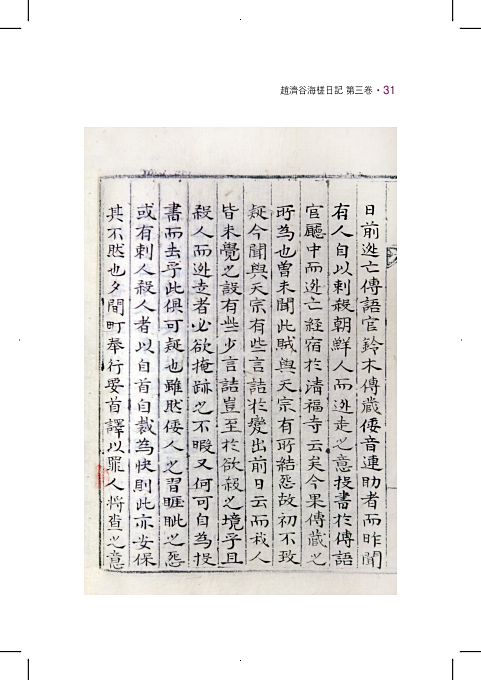 趙濟谷海槎日記 第三卷 • 31
日前迯亡傳語官鈴木傳藏倭音連助者而昨聞
有人自以刺殺朝鮮人而迯走之意投書於傳語
官廳中而迯亡経宿於淸福寺云矣今果傳藏之
所為也曾未聞此賊與天宗有所結怨故初不致
疑今聞與天宗有些言詰於變出前日云而我人
皆未覺之設有些少言詰豈至於欲殺之境乎且
殺人而迯去者必欲掩跡之不暇又何可自為投
書而去乎此俱可疑也雖然倭人之習睚眦之怨
或有刺人殺人者以自首自裁為快則此亦安保
其不然也夕間町奉行要首譯以罪人將查之意